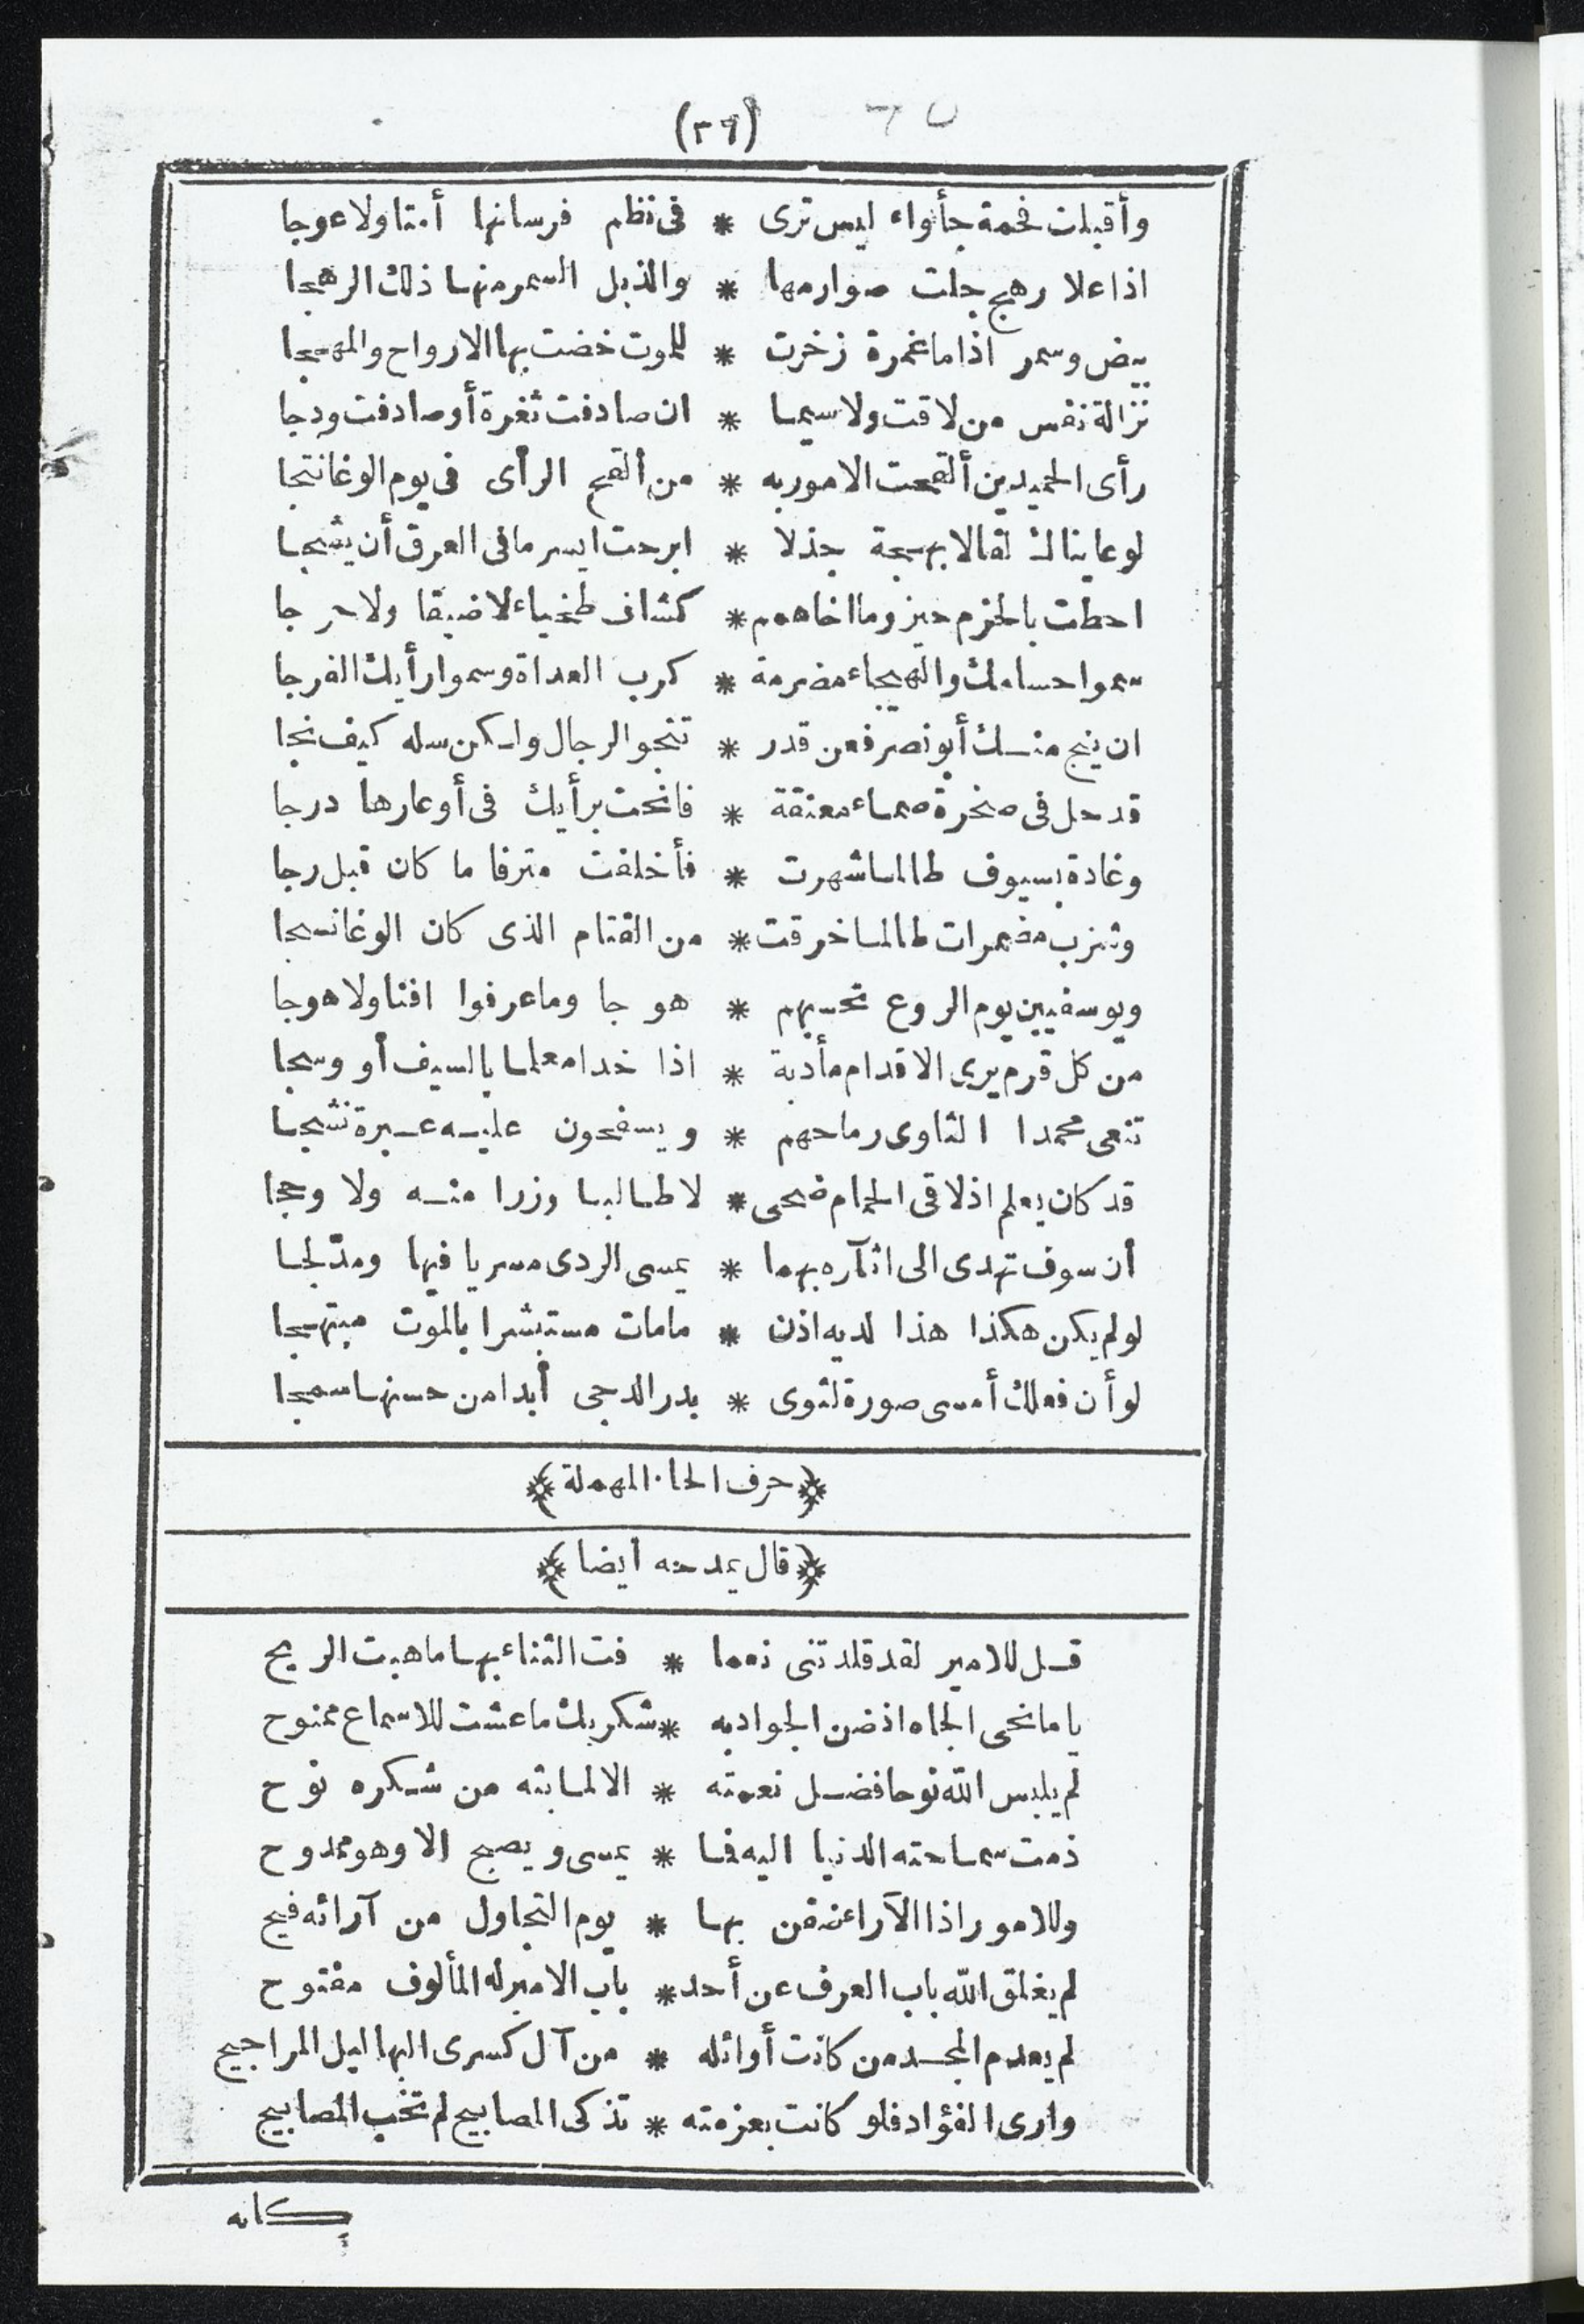 (٣٦)
وأقبلت فخمة جأواء ليس ترى * فى نظم فرسانها أمتا ولا عوجا
اذا علا رهج جلت صوارمها * والذبل السمر منها ذلك الرهجا
بيض وسمر اذا ما غمرة زخرت * للموت خضت بها الارواح والمهجا
نزالة نفس من لاقت ولا سيما * ان صادفت ثغرة أو صادفت ودجا
رأى الحميدين ألقحت الامور به * من ألقح الرأى فى يوم الوغا نتجا
لو عاينالك لقالا بهجة جذلا * ابرحت ايسر ما فى العرق أن يشجا
احطت بالحزم حيزوما اخا همم * كشاف طخياء لا ضيقا ولا حرجا
سموا حسامك والهيجاء مضرمة * كرب العداة وسموا رأيك الفرجا
ان ينج منك أبو نصر فعن قدر * تنجو الرجال ولكن سله كيف نجا
قد حل فى صخرة صماء معنقة * فانحت برأيك فى أوعارها درجا
وغادة بسيوف طالما شهرت * فأخلفت مترفا ما كان قبل رجا
وشزب مضمرات طالما خرقت * من القتام الذى كان الوغا نسجا
ويوسفيين يوم الروع تحسبهم * هوجا وما عرفوا افنا ولا هوجا
من كل قرم يرى الاقدام مأدبة * اذا خدا معلما بالسيف أو وسجا
تنعى محمدا الثاوى رماحهم * ويسفحون عليه عبرة نشجا
قد كان يعلم اذ لاقى الحمام ضحى * لا طالبا وزرا منه ولا وججا
أن سوف تهدى الى اثآره بهما * يمسى الردى مسريا فيها ومدّلجا
لو لم يكن هكذا هذا لديه اذن * ما مات مستبشرا بالموت مبتهجا
لو أن فعلك أمسى صورة لثوى * بدر الدجى أبدا من حسنها سمجا
﴿حرف الحاء المهملة﴾
﴿قال يمدحه أيضا﴾
قل للامير لقد قلدتنى نعما * فت الثناء بها ما هبت الريح
يا مانحى الجاه اذ ضن الجواد به * شكريك ما عشت للاسماع ممنوح
لم يلبس اللّه نوحا فضل نعمته * الا لما بثه من شكره نوح
ذمت سماحته الدنيا اليه فما * يمسى ويصبح الا وهو ممدوح
وللامور اذا الآراء ضقن بها * يوم التجاول من آرائه فيح
لم يغلق اللّه باب العرف عن أحد * باب الامير له المألوف مفتوح
لم يعدم المجد من كانت أوائله * من آل كسرى البهاليل المراجيح
وارى الفؤاد فلو كانت بعزمته * تذكى المصابيح لم تخب المصابيح
كانه